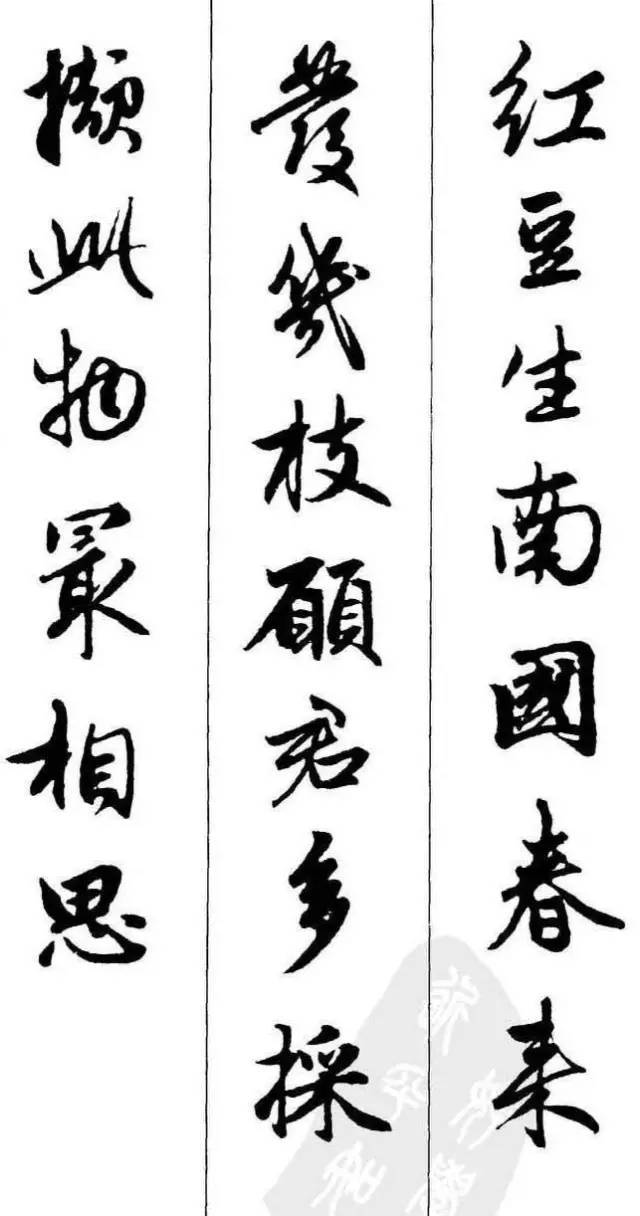 紅豆生南國春來
發幾枝願君多採
擷此物最相思